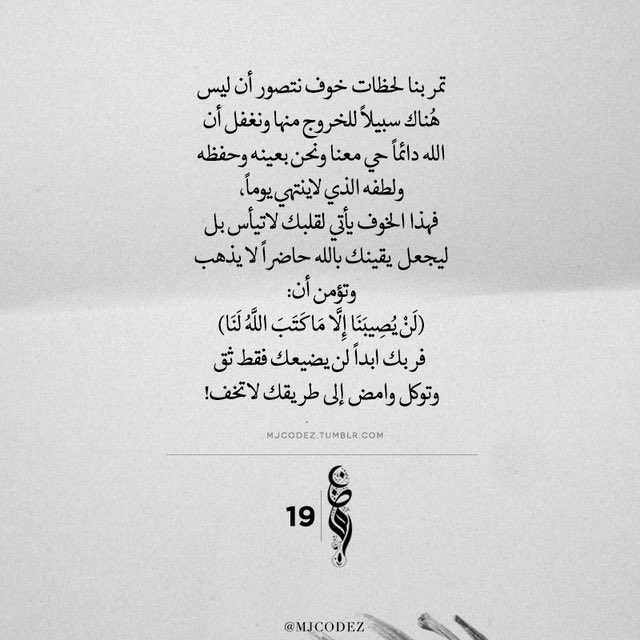 تمر بنا لحظات خوف نتصور أن ليس
هُناك سبيلاً للخروج منها ونغفل أن
الله دائماً حي معنا ونحن بعينه وحفظه
ولطفه الذي لاينتهي يوماً،
فهذا الخوف يأتي لقلبك لاتيأس بل
ليجعل يقينك بالله حاضراً لا يذهب
وتؤمن أن:
(لَنْ يُصِيبَنَا إِلَّا مَا كَتَبَ اللَّهُ لَنَا)
فربك ابداً لن يضيعك فقط ثق
وتوكل وامض إلى طريقك لاتخف!
MJCODEZ.TUMBLR.COM
19
@MJCODEZ